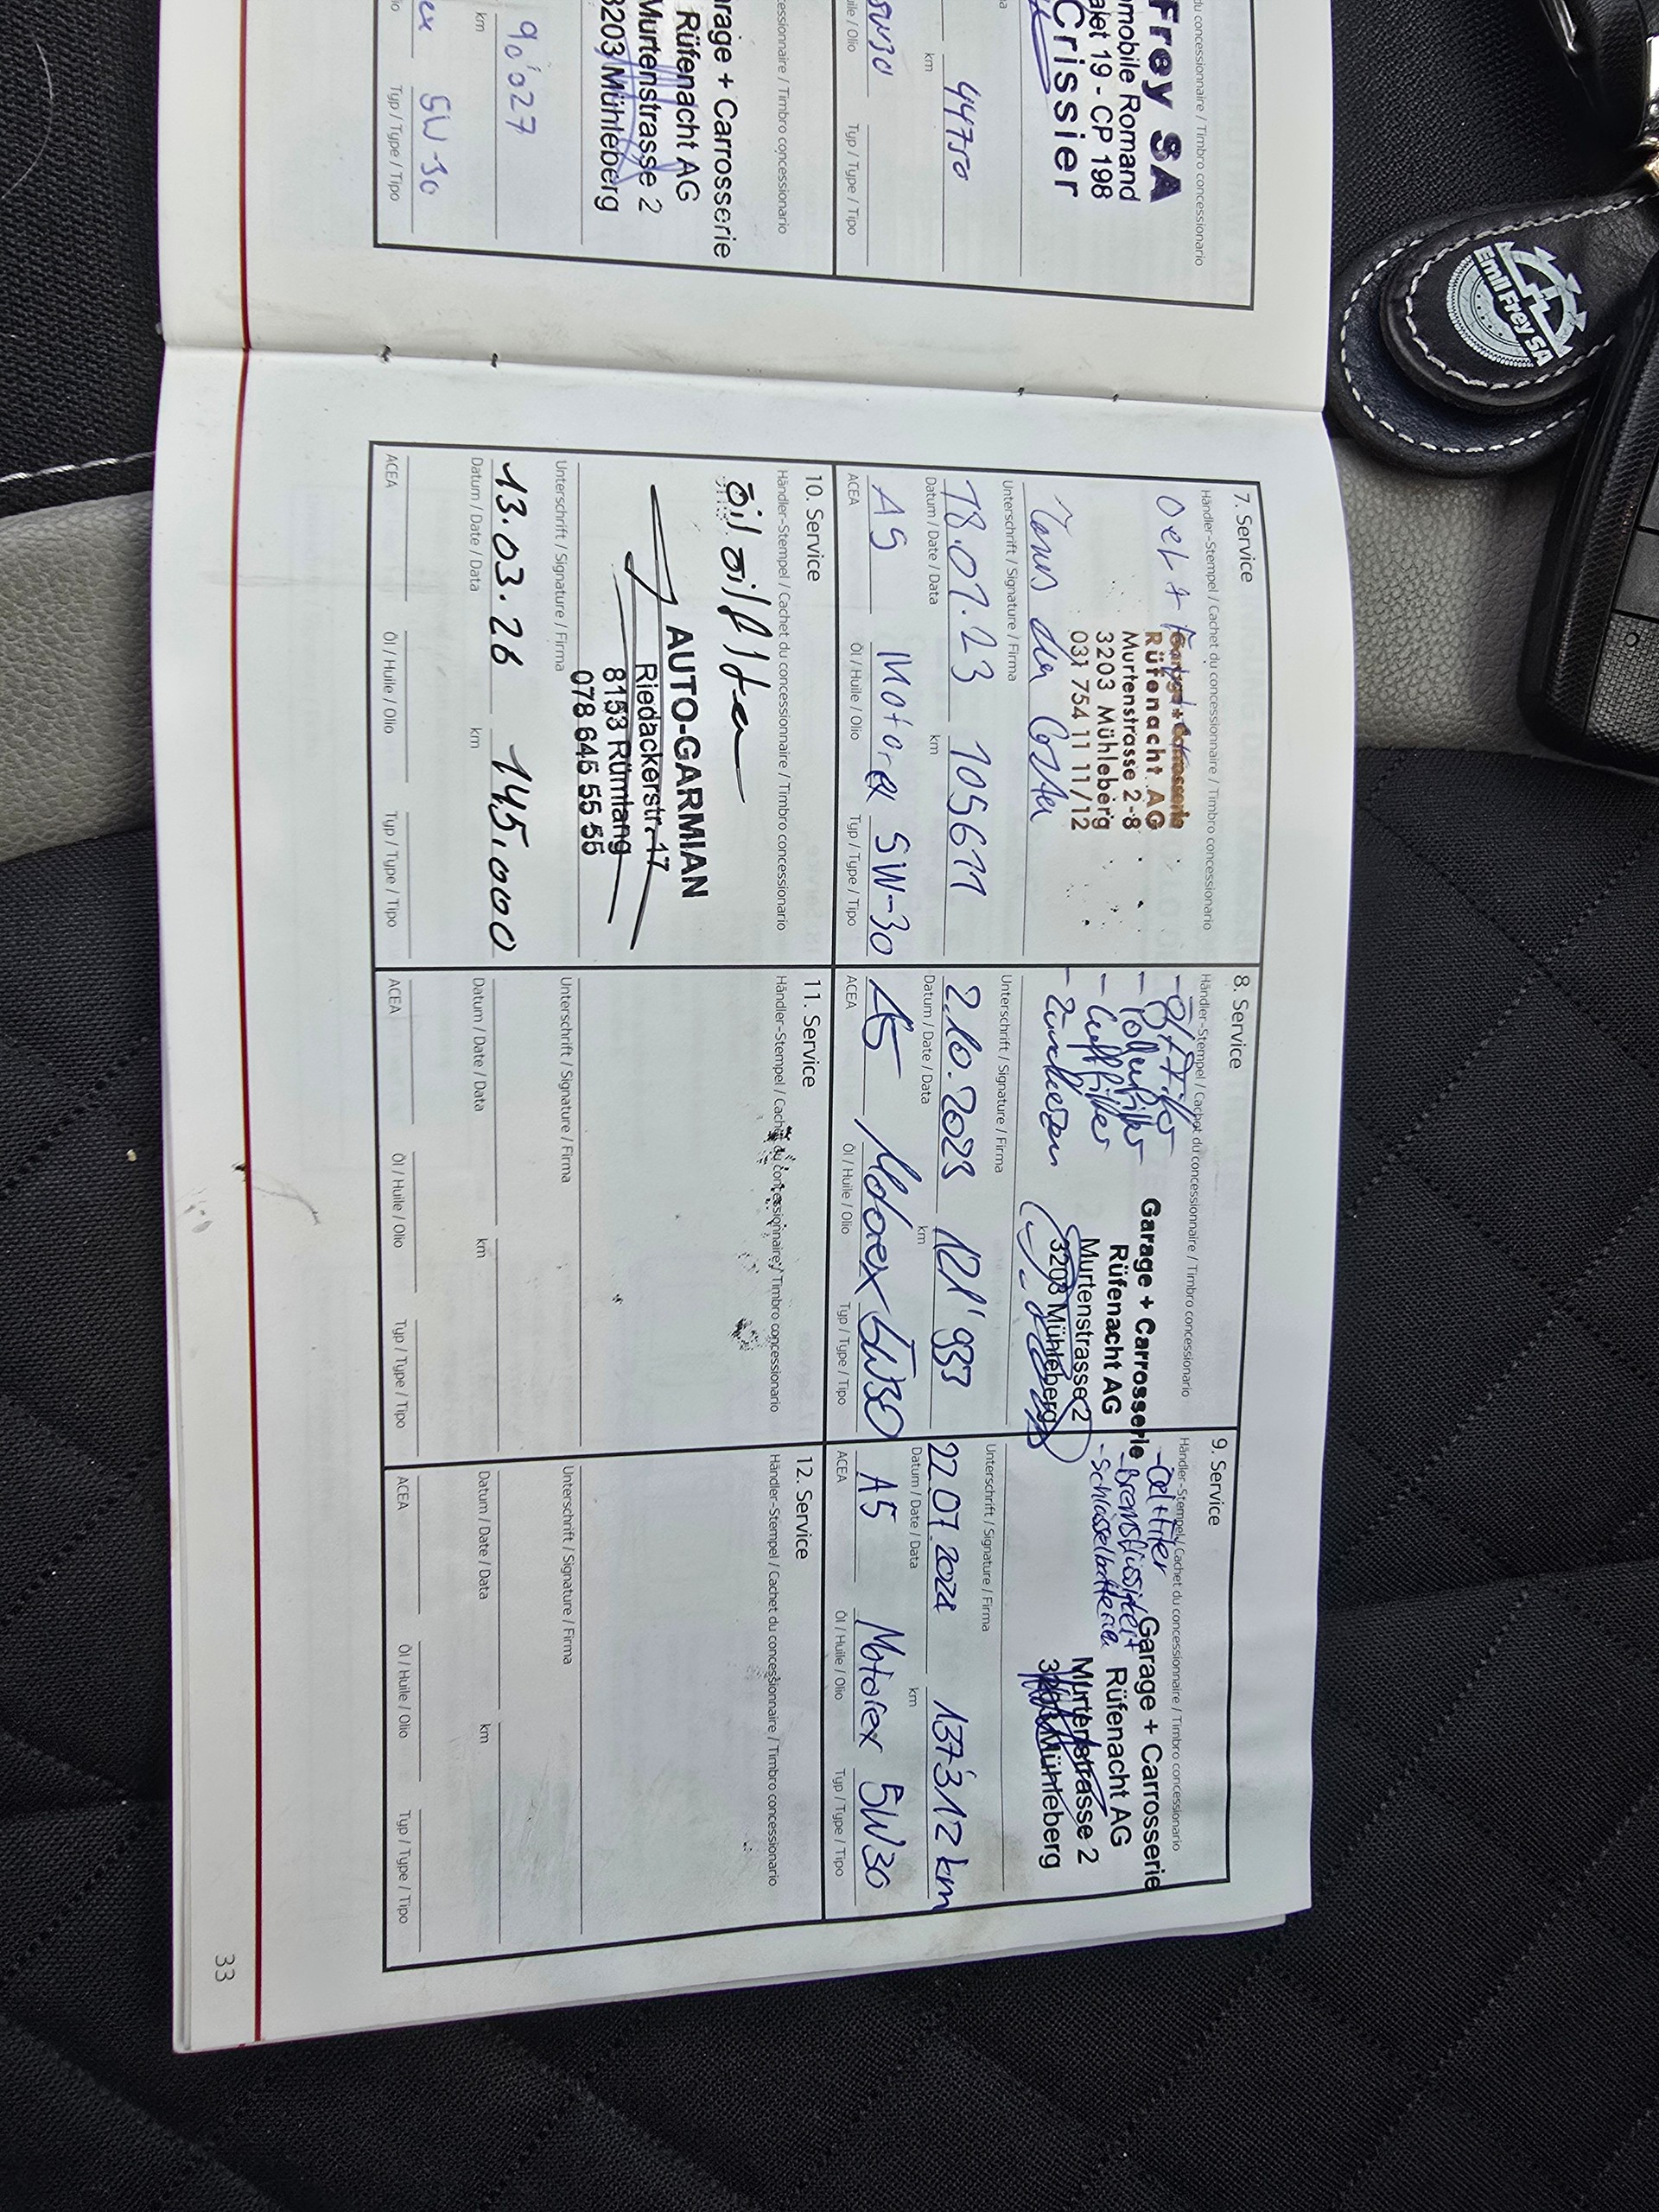 du concessionnaire / Timbro concessionario
Frey SA
mobile Romand
alet 19 - CP 198
Crissier
44750
km
5W30
Typ / Type / Tipo
cessionnaire / Timbro concessionario
rage + Carrosserie
Rüfenacht AG
Murtenstrasse 2
3203 Mühleberg
90'027
km
5W-30
Typ / Type / Tipo
Emil Frey SA
7. Service
Händler-Stempel / Cachet du concessionnaire / Timbro concessionario
Oel +
Garage + Carrosserie
Rüfenacht AG
Murtenstrasse 2-8
3203 Mühleberg
031 754 11 11/12
Unterschrift / Signature / Firma
18.01.23 105611
Datum / Date / Data km
A5 Motorex 5W-30
ACEA Öl / Huile / Olio Typ / Type / Tipo
8. Service
Händler-Stempel / Cachet du concessionnaire / Timbro concessionario
- Öl / Filter
- Pollenfilter
- Luftfilter
- Zündkerzen
Garage + Carrosserie
Rüfenacht AG
Murtenstrasse 2
3203 Mühleberg
Unterschrift / Signature / Firma
2.10.2023 121'933
Datum / Date / Data km
A5 Motorex 5W30
ACEA Öl / Huile / Olio Typ / Type / Tipo
9. Service
Händler-Stempel / Cachet du concessionnaire / Timbro concessionario
- Oel + Filter
- Bremsflüssigkeit
- Schlüsselbatterie
Garage + Carrosserie
Rüfenacht AG
Murtenstrasse 2
3203 Mühleberg
Unterschrift / Signature / Firma
22.07.2024 137'312 km
Datum / Date / Data km
A5 Motorex 5W30
ACEA Öl / Huile / Olio Typ / Type / Tipo
10. Service
Händler-Stempel / Cachet du concessionnaire / Timbro concessionario
AUTO-GARMIAN
Riedackerstr. 17
8153 Rümlang
078 645 55 55
Unterschrift / Signature / Firma
13.03.26 145.000
Datum / Date / Data km
ACEA Öl / Huile / Olio Typ / Type / Tipo
11. Service
Händler-Stempel / Cachet du concessionnaire / Timbro concessionario
Unterschrift / Signature / Firma
Datum / Date / Data km
ACEA Öl / Huile / Olio Typ / Type / Tipo
12. Service
Händler-Stempel / Cachet du concessionnaire / Timbro concessionario
Unterschrift / Signature / Firma
Datum / Date / Data km
ACEA Öl / Huile / Olio Typ / Type / Tipo
33